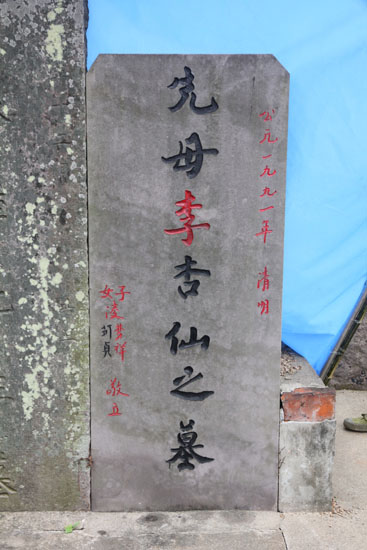 公元一九九一年 清明
先母李杏仙之墓
子
女 凌 祥 貞 敬立